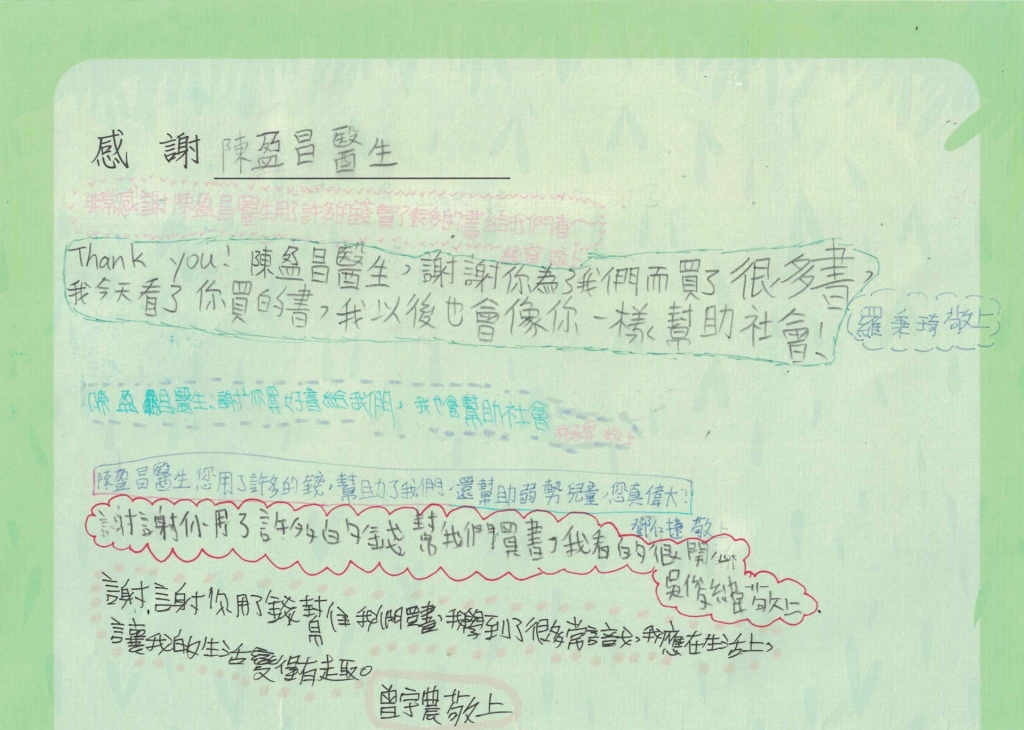 感謝 陳盈昌醫生
非常感謝陳盈昌醫生用了許多的錢買了很多的書給我們看
Thank you! 陳盈昌醫生，謝謝你為了我們而買了很多書，
我今天看了你買的書，我以後也會像你一樣幫助社會!
羅秉琦敬上
陳盈昌醫生謝謝你買好書給我們，我也會幫助社會
敬上
陳盈昌醫生您用了許多的錢，幫助了我們，還幫助弱勢兒童，您真偉大!
鄧仁捷敬上
謝謝你用了許多的錢幫我們買書，我看的很開心
吳俊緯敬上
謝謝你用了錢幫住我們買書，我學到了很多常識，我應在生活上，
讓我的生活變得有趣。
曾宇農敬上